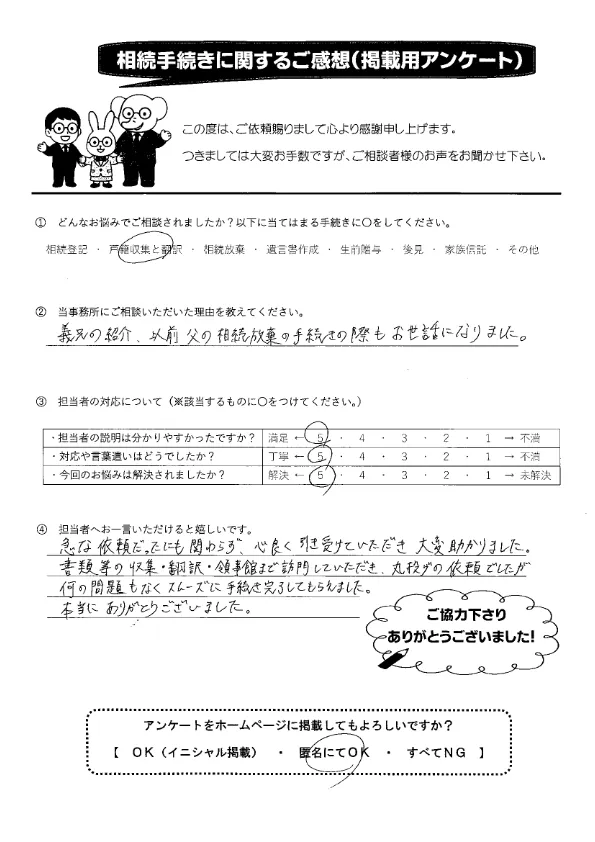 相続手続きに関するご感想(掲載用アンケート)
この度は、ご依頼賜りまして心より感謝申し上げます。
つきましては大変お手数ですが、ご相談者様のお声をお聞かせ下さい。
① どんなお悩みでご相談されましたか？以下に当てはまる手続きに〇をしてください。
相続登記 ・ 戸籍収集と翻訳 ・ 相続放棄 ・ 遺言書作成 ・ 生前贈与 ・ 後見 ・ 家族信託 ・ その他
② 当事務所にご相談いただいた理由を教えてください。
義兄の紹介、以前父の相続放棄の手続きの際もお世話になりました。
③ 担当者の対応について（※該当するものに〇をつけてください。）
・担当者の説明は分かりやすかったですか？ 満足 ← 5 ・ 4 ・ 3 ・ 2 ・ 1 → 不満
・対応や言葉遣いはどうでしたか？ 丁寧 ← 5 ・ 4 ・ 3 ・ 2 ・ 1 → 不満
・今回のお悩みは解決されましたか？ 解決 ← 5 ・ 4 ・ 3 ・ 2 ・ 1 → 未解決
④ 担当者へお一言いただけると嬉しいです。
急な依頼だったにも関わらず、心良く引き受けていただき大変助かりました。
書類等の収集・翻訳・領事館まで訪問していただき、丸投げの依頼でしたが
何の問題もなくスムーズに手続き完了してもらえました。
本当にありがとうございました。
ご協力下さり
ありがとうございました!
アンケートをホームページに掲載してもよろしいですか？
【 OK（イニシャル掲載） ・ 匿名にてOK ・ すべてNG 】